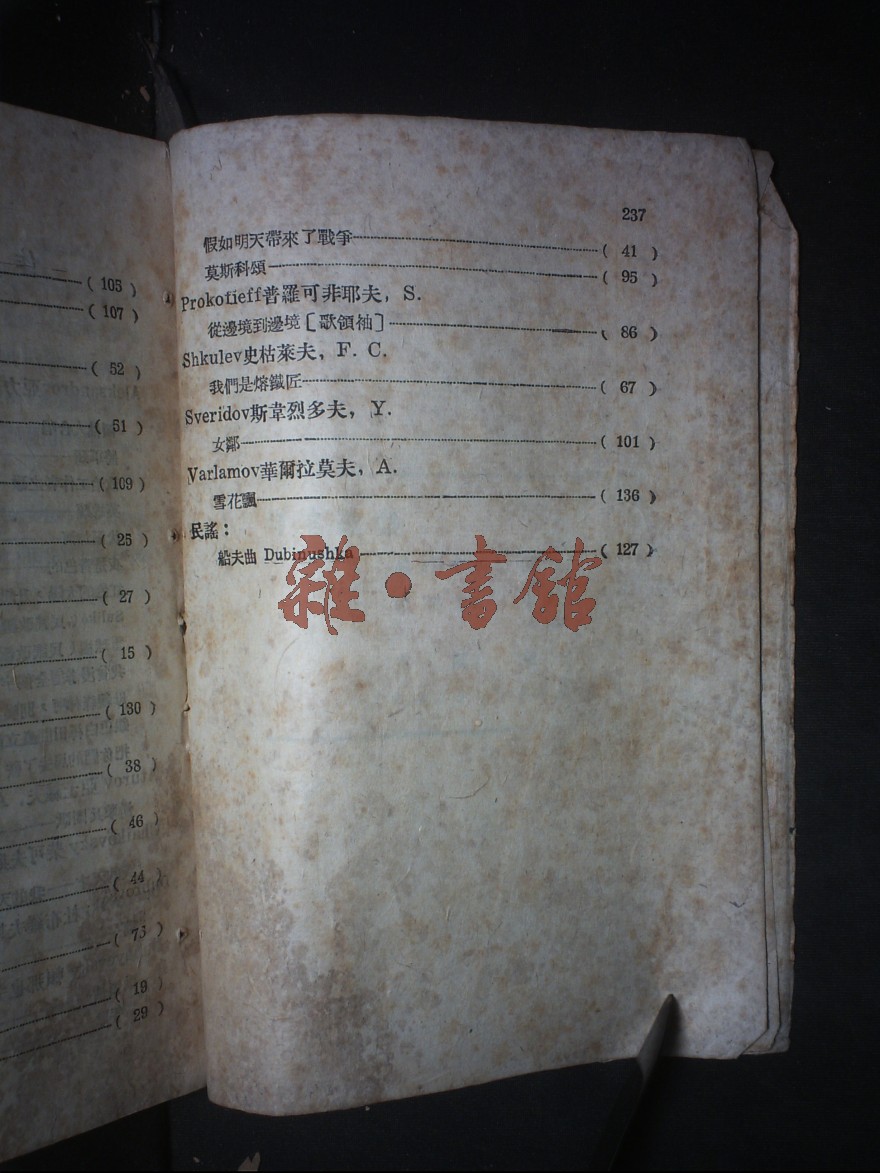 105 )
107 )
( 52 )
( 51 )
( 109 )
( 25 )
( 27 )
( 15 )
( 130 )
( 38 )
( 46 )
( 44 )
( 73 )
( 19 )
( 29 )
237
假如明天帶來了戰爭 ( 41 )
莫斯科頌 ( 95 )
Prokofieff普羅可非耶夫, S.
從邊境到邊境[歌領袖] ( 86 )
Shkulev史枯萊夫, F. C.
我們是熔鐵匠 ( 67 )
Sveridov斯韋烈多夫, Y.
女鄰 ( 101 )
Varlamov華爾拉莫夫, A.
雪花飄 ( 136 )
民謠:
船夫曲 Dubinushka ( 127 )
雜·書館